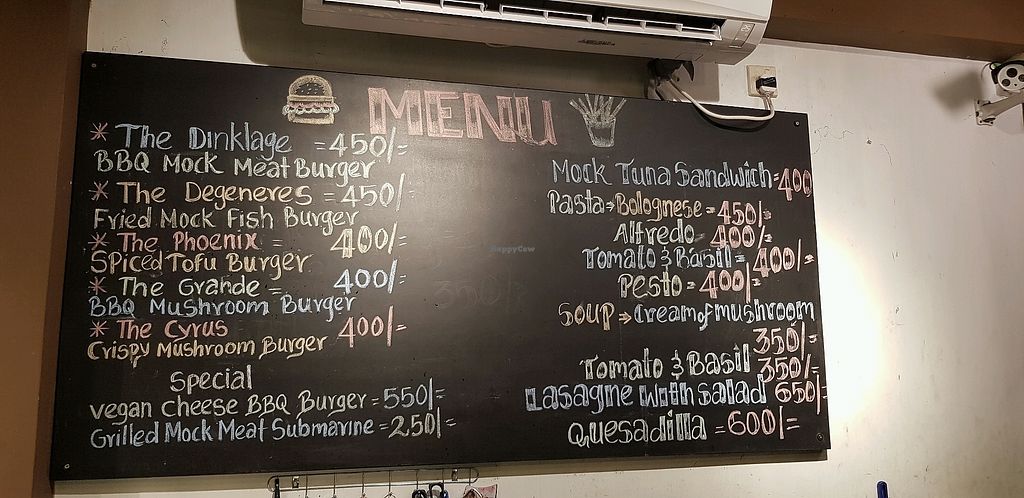 MENU
* The Dinklage = 450/=
BBQ Mock Meat Burger
* The Degeneres = 450/=
Fried Mock Fish Burger
* The Phoenix = 400/=
Spiced Tofu Burger
* The Grande = 400/=
BBQ Mushroom Burger
* The Cyrus 400/=
Crispy Mushroom Burger
Special
vegan cheese BBQ Burger = 550/=
Grilled Mock Meat Submarine = 250/=
Mock Tuna Sandwich = 400
Pasta → Bolognese = 450/=
Alfredo 400/=
Tomato & Basil = 400/=
Pesto = 400/=
Soup → cream of mushroom
350/=
Tomato & Basil 350/=
Lasagne with salad 650/=
Quesadilla = 600/=
HappyCow